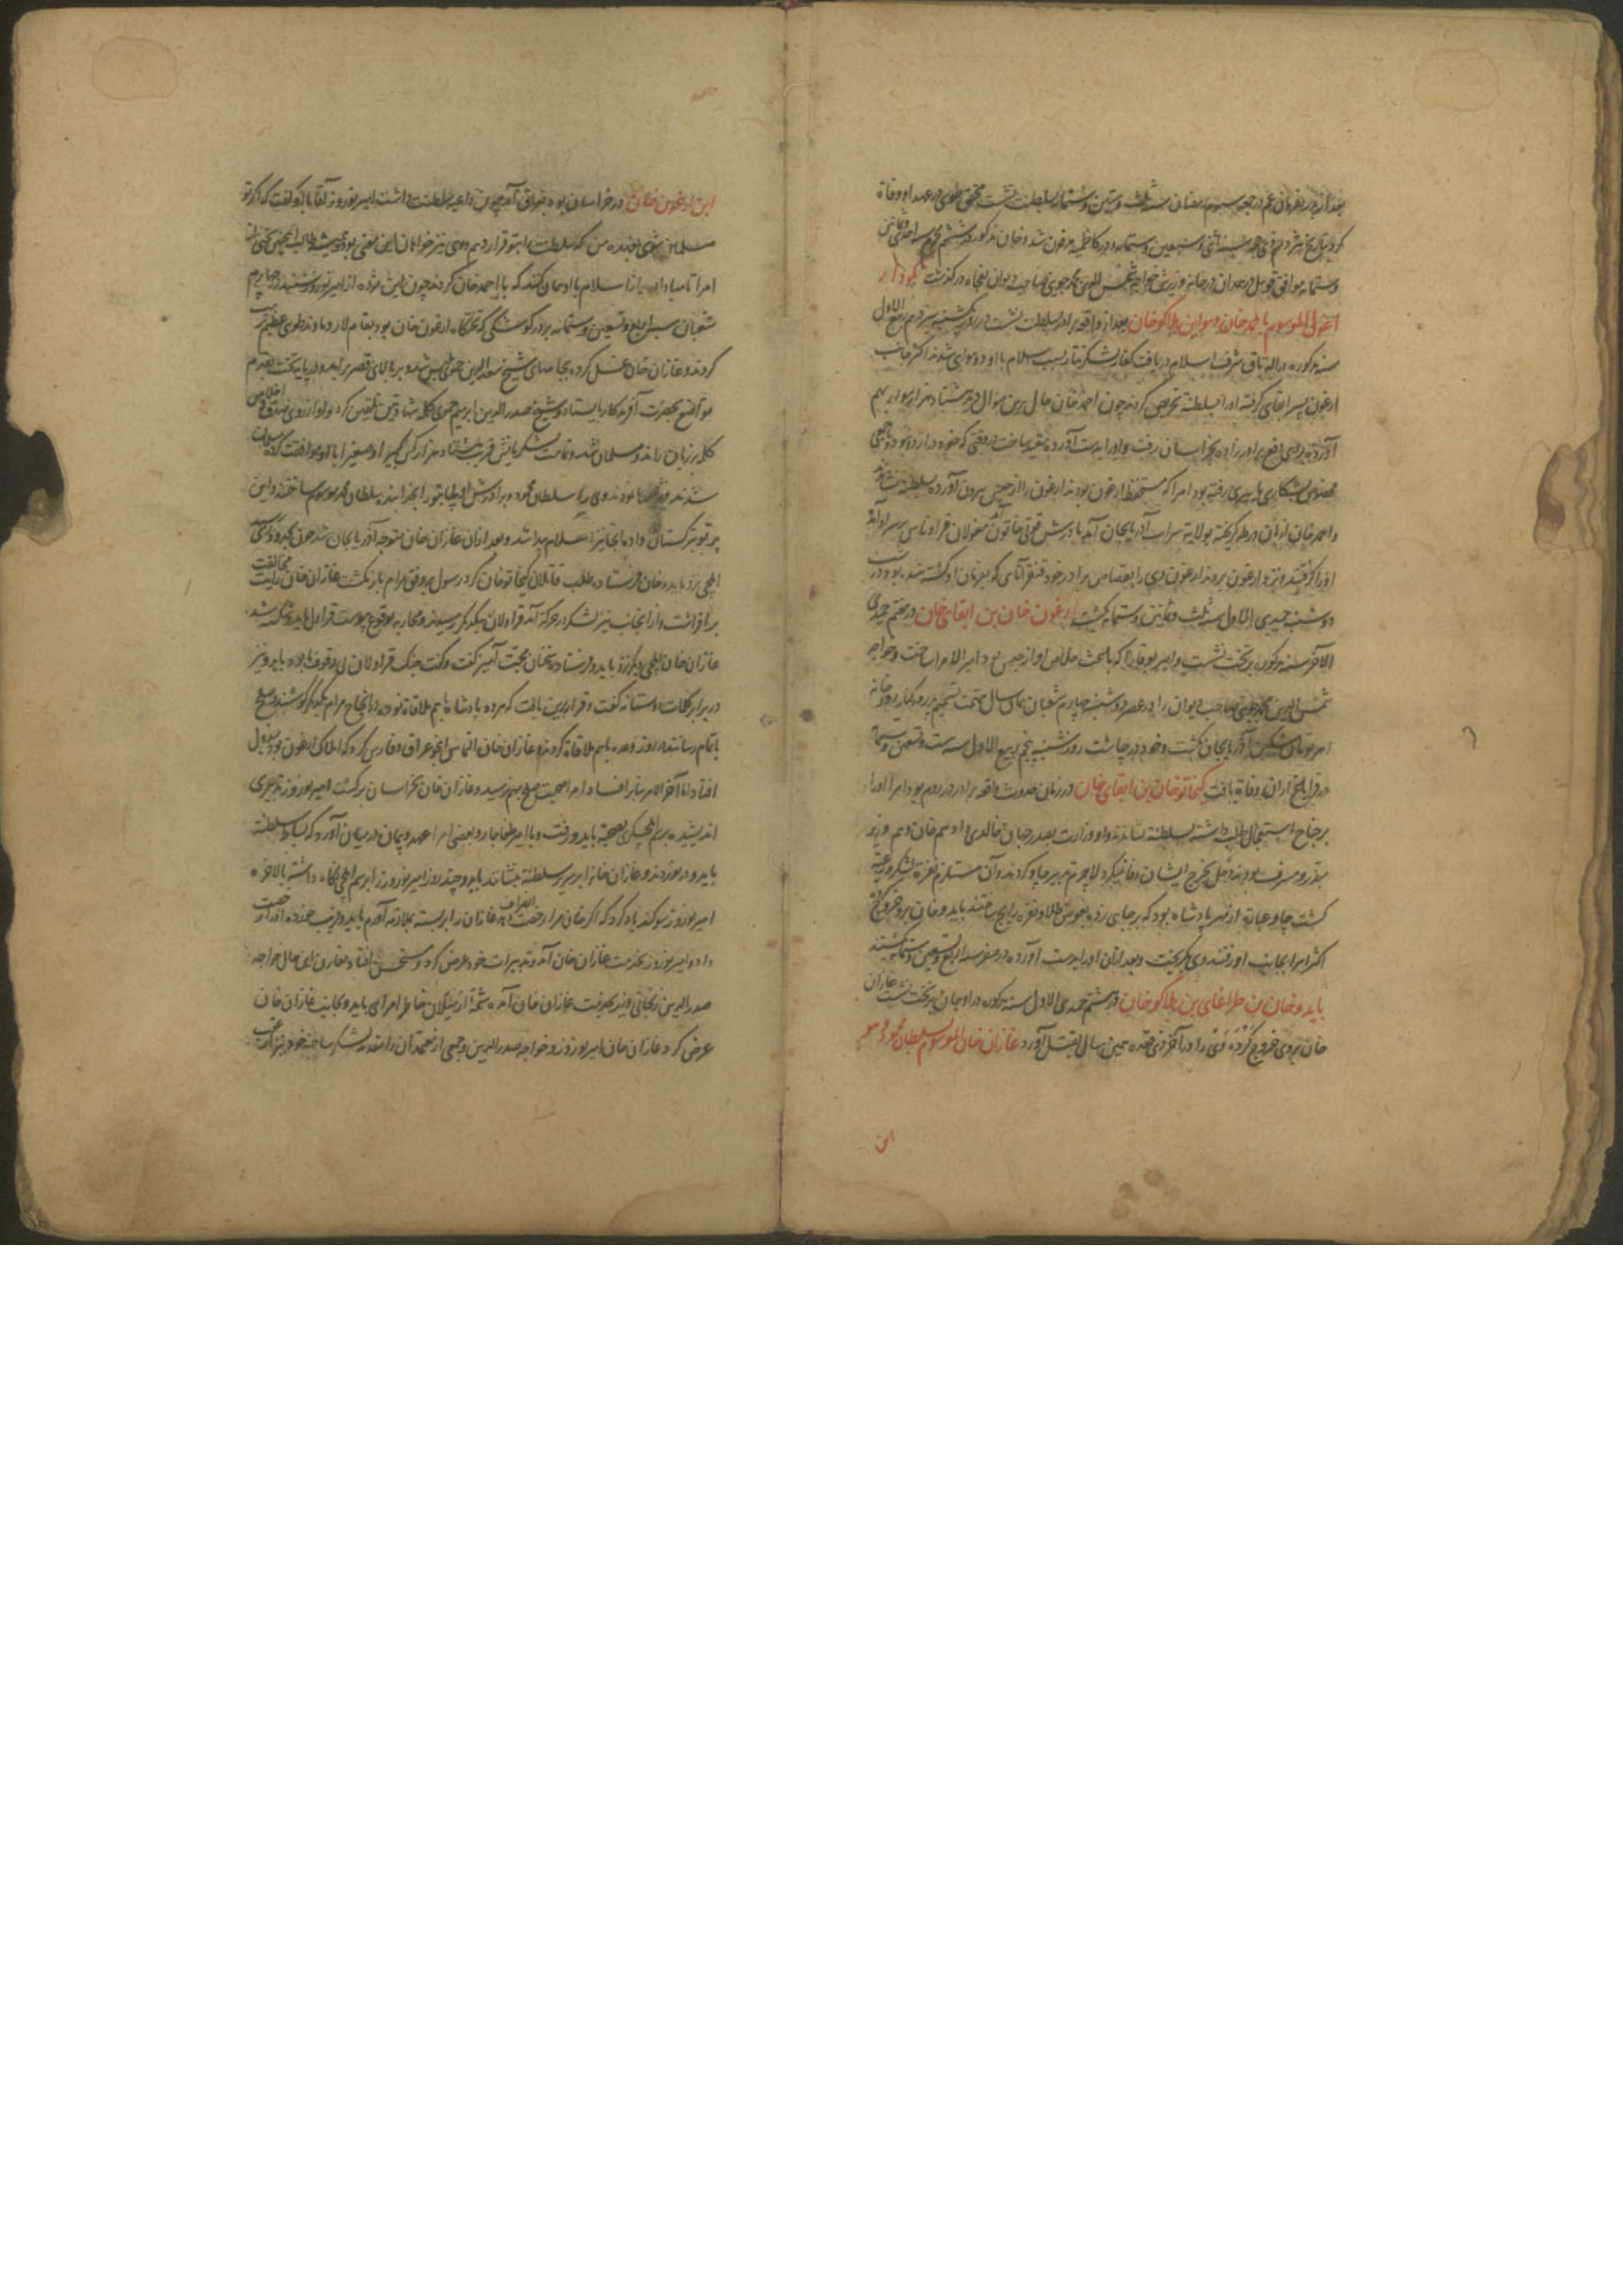 بعد از پدر بفرمان عم در جمعه سیوم رمضان سنه ثلث و ستین و ستمایه بسلطنت نشست محقق طوسی در عهد او وفاة
کرد بتاریخ هژدهم ذی حجه سنه اثنی و سبعین و ستمایه و در کاظمیه مدفون شد و خان مذکور در ششم محرم سنه احدی و ثمانین
و ستمایه موافق قوییل در همدان درجایز وزیرش خواجه شمس الدین محمد جوینی صاحب دیوان بفجاه درگذشت تکودار
اغول الموسوم باحمد خان و هو ابن هلاکو خان بعد از واقعه برادر بسلطنت نشست در روز یکشنبه سیزدهم ربیع الاول
سنه مذکوره در الاتاق شرف اسلام دریافت کفار لشکر تتار بسبب اسلام با او دو هوای شدند اکثر جانب
ارغون پسر ابقای گرفته اورا بسلطنة تحریص کردند چون احمد خان حال برین منوال دید هشتاد هزار سوار بهم
آورده برای دفع برادر زاده بخراسان رفت و اورا بدست آورده مقید ساخت در وقتی که خود در اردو نبود و جمعی
مخصوص بشکاری به سیری رفته بود امرا که مستحفظ ارغون بودند ارغون را از حبس بیرون آورده بسلطنة نشاندند
و احمد خان از آن ورطه گریخته بولایة سراب آذربایجان آمد مادرش قوتی خاتون مغولان قراوناس بر سر او آمده
اورا گرفتند و نزد ارغون بردند ارغون وی را بقصاص برادر خود قنقرآتای که بفرمان او کشته شده بود در شب
دوشنبه جمیدی الاول سنه ثلث و ثمانین و ستمایه بکشت ارغون خان بن ابقای خان در هفتم جمیدی
الآخر سنه مذکور بر تخت نشست و امیر بوقا را که باعث خلاص او از حبس بود امیر الامرا ساخت و خواجه
شمس الدین محمد جوینی صاحب دیوان را در عصر دوشنبه چهارم شعبان همان سال بتهمت تسمیم پدر بر کنار رودخانه
اهر توابع مشکین آذربایجان بکشت و خود در چاشت روز شنبه پنجم ربیع الاول سنه ست و تسعین و ستمایة
در قراباغ اران وفاة یافت کیخاتو خان بن ابقای خان در زمان حدوث واقعه برادر در روم بود امرا اورا
بر جناح استعجال طلب داشته بسلطنة نشاندند او وزارت بصدر جهان خالدی داد هم خان و هم وزیر
مبذر و مسرف بودند دخل بخرج ایشان وفا نمیکرد لاجرم تدبیر چاو کردند و آن مستلزم نفرة لشکر و رعیة
گشت چاو عبارة از مهر پادشاه بود که بر جایی زده بعوض طلا و نقره رایج ساختند بایدو خان برو خروج کرده
اکثر امرا بجانب او رفتند وی بگریخت و بعد از آن اورا بدست آورده در صفر سنه اربع و تسعین و ستمایه بکشتند
بایدو خان بن طراغای بن هلاکو خان در هشتم جمیدی الاول سنه مذکوره در اوجان بر تخت نشست غازان
خان بروی خروج کرده وی را در آخر ذی قعده همین سال بقتل آورد غازان خان الموسوم بسلطان محمود و هو
ابن
ابن ارغون خان در خراسان بود بعراق آمد چون داعیه سلطنت داشت امیر نوروز آقا با او گفت که اگر تو
مسلمان شوی بنده من که سلطنت را بتو قرار دهم و وی نیز خواهان این معنی بود و همیشه طالب
امرا تا مبادا بعد از اسلام با او همان کنند که با احمد خان کردند چون این مژده از امیر نوروز شنید در چهارم
شعبان سنه اربع و تسعین و ستمایه بر در کوشکی که تختگاه ارغون خان بود بمقام لار دماوند طوی عظیم ترتیب
کردند و غازان خان غسل کرده بجامهای شیخ سعد الدین حموی ملبس شد و بر بالای قصر برآمد و در پایه تخت بقدم
تواضع بحضرت آفریدگار بایستاد و شیخ صدر الدین ابراهیم حموی کلمه شهادتین تلقین کرد و او از روی صدق و اخلاص
کلمه بر زبان راند و مسلمان شد و تمامت لشکریانش قریب هشتاد هزار کس کبیرا و صغیرا با او موافقت کرده مسلمان
شدند و وی را سلطان محمود و برادرش اولجایتو را بخدا بنده سلطان محمد موسوم ساختند و این
پرتو بترکستان داد و آنجا نیز اسلام پیدا شد و بعد از آن غازان خان متوجه آذربایجان شد چون بحدود ری رسید
ایلچی نزد بایدو خان فرستاد و طلب قاتلان کیخاتو خان کرد رسول بی وفق مرام بازگشت غازان خان رایت مخالفت
برافراشت و از آنجانب نیز لشکر در حرکة آمد قراولان بیکدیگر رسیدند و محاربه بوقوع پیوست قراول بایدو شکسته شد
غازان خان ایلچی دیگر نزد بایدو فرستاد و سخنان محبت آمیز گفت و گفت جنگ قراولان بی وقوف ما بود بایدو نیز
در برابر کلمات دوستانه گفت و قرار برین یافت که هر دو پادشاه باهم ملاقاة نموده در انجاح مرام یکدیگر کوشند و صلح
باتمام رسانند در روز وعده باهم ملاقاة کردند و غازان خان التماس اینجو عراق و فارس کرد که املاک ارغون بود قبول
افتاد اما آخر الامر بنابر افساد امرا صحبت صلح بهم نرسید و غازان خان بخراسان برگشت امیر نوروز تدبیری
اندیشیده برسم ایلچیگری بصحبة بایدو رفت و با امیر طغاجار و بعضی امرا عهد و پیمان در میان آورد که بساط سلطنة
بایدو در نوردند و غازان خان را بر سریر سلطنة بنشانند بایدو چند روز امیر نوروز را برسم ایلچی نگاه داشته بالاخره
امیر نوروز سوگند یاد کرد که اگر خان مرا رخصت انصراف دهد غازان را بر بسته بملازمة آورم بایدو فریب خورده اورا رخصت
داد و امیر نوروز بخدمت غازان خان آمد و تدبیرات خود عرض کرد و مستحسن افتاد مقارن این حال خواجه
صدر الدین زنجانی وزیر بخدمت غازان خان آمده شمة از میلان خاطر امرای بایدو بجانب غازان خان
عرض کرد غازان خان امیر نوروز و خواجه صدر الدین و جمعی از معتمدان را مقدمه لشکر ساخته خود نیز از عقب